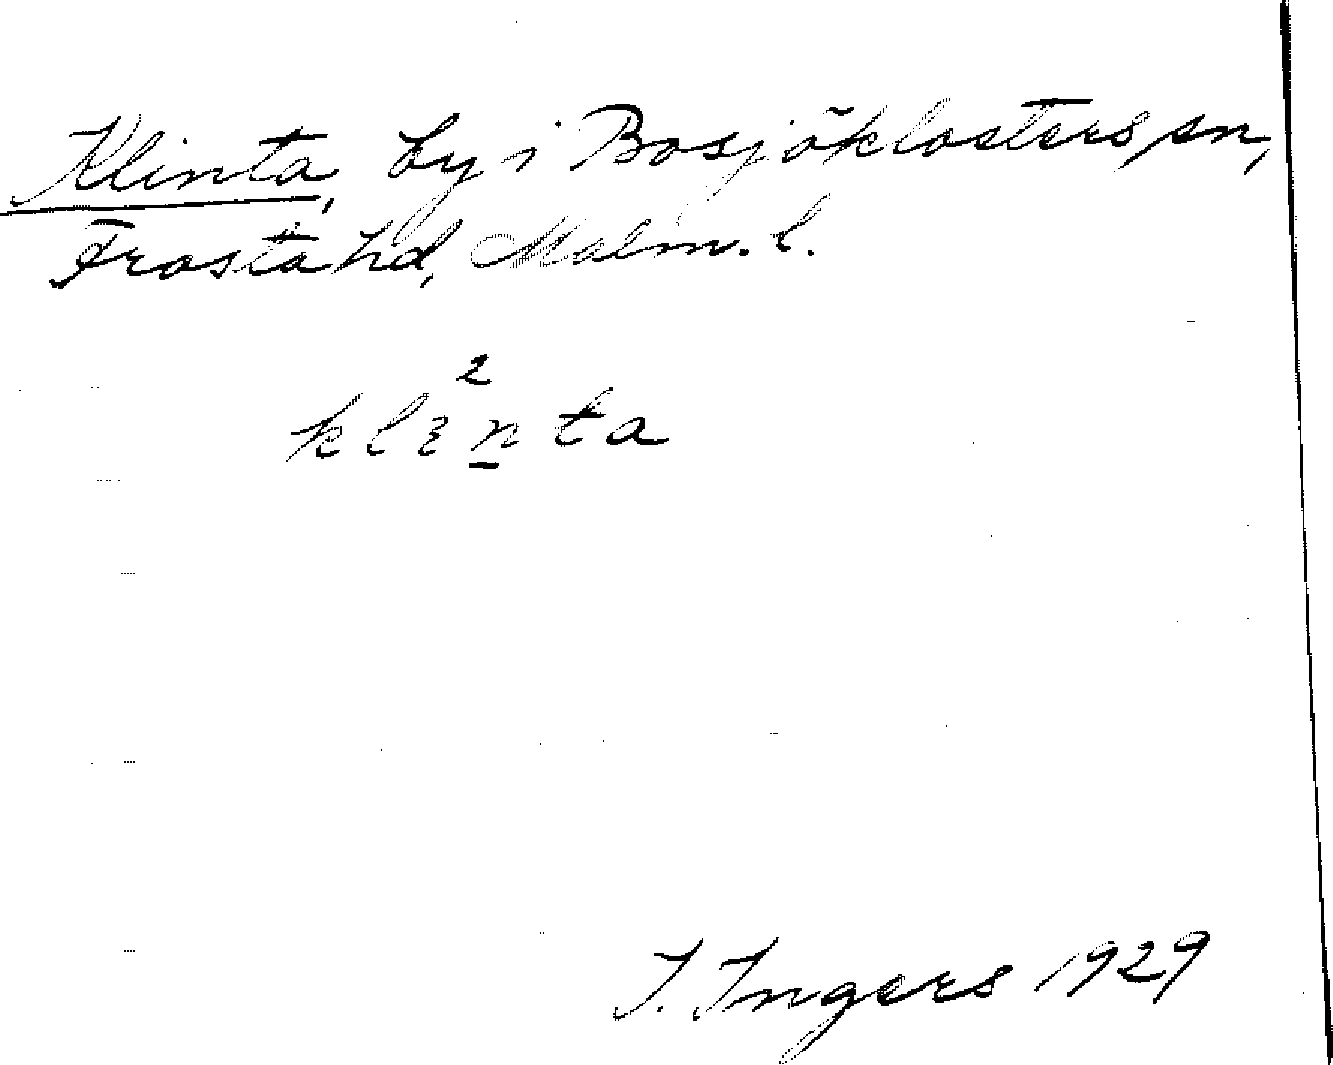 Klinta, by i Bosjöklosters sn,
Frosta hd, Malm. l.
2
klɛn̲ta
I. Ingers 1929